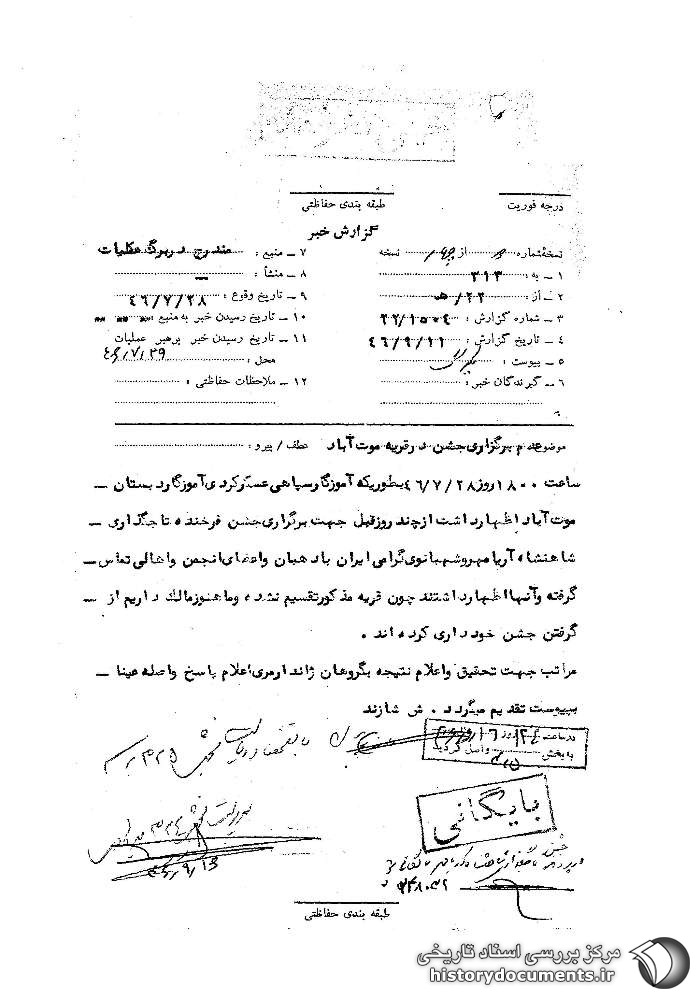 درجه فوریت
طبقه بندی حفاظتی
گزارش خبر
نسخه شماره از چهار نسخه
۱ ـ به : ۳۱۳
۲ ـ از : ۲۲/هـ
۳ ـ شماره گزارش : ۲۲/۱۵۰۴
۴ ـ تاریخ گزارش : ۴۶/۹/۱۱
۵ ـ پیوست :
۶ ـ گیرندگان خبر :
۷ ـ منبع : مندرج در برگ عملیات
۸ ـ منشأ : ــ
۹ ـ تاریخ وقوع : ۴۶/۷/۲۸
۱۰ ـ تاریخ رسیدن خبر به منبع :
۱۱ ـ تاریخ رسیدن خبر برهبر عملیات
محل : ۴۶/۷/۲۹
۱۲ ـ ملاحظات حفاظتی :
موضوع عدم برگزاری جشن در قریه موت آباد عطف / پیرو :
ساعت ۱۸۰۰ روز ۴۶/۷/۲۸ بطوریکه آموزگار سپاهی عسکر کردی آموزگار دبستان ــ
موت آباد اظهار داشت از چند روز قبل جهت برگزاری جشن فرخنده تاجگذاری ــ
شاهنشاه آریامهر و شهبانوی گرامی ایران با دهبان و اعضای انجمن و اهالی تماس ــ
گرفته و آنها اظهار داشتند چون قریه مذکور تقسیم نشده و ما هنوز مالک داریم از ــ
گرفتن جشن خودداری کرده اند .
مراتب جهت تحقیق و اعلام نتیجه بگروهان ژاندارمری اعلام پاسخ واصله عینا ــ
بپیوست تقدیم میگردد . ش شازند
در ساعت روز
به بخش واصل گردید
بایگانی
۴۶/۹/۱۳
طبقه بندی حفاظتی
مرکز بررسی اسناد تاریخی
historydocuments.ir